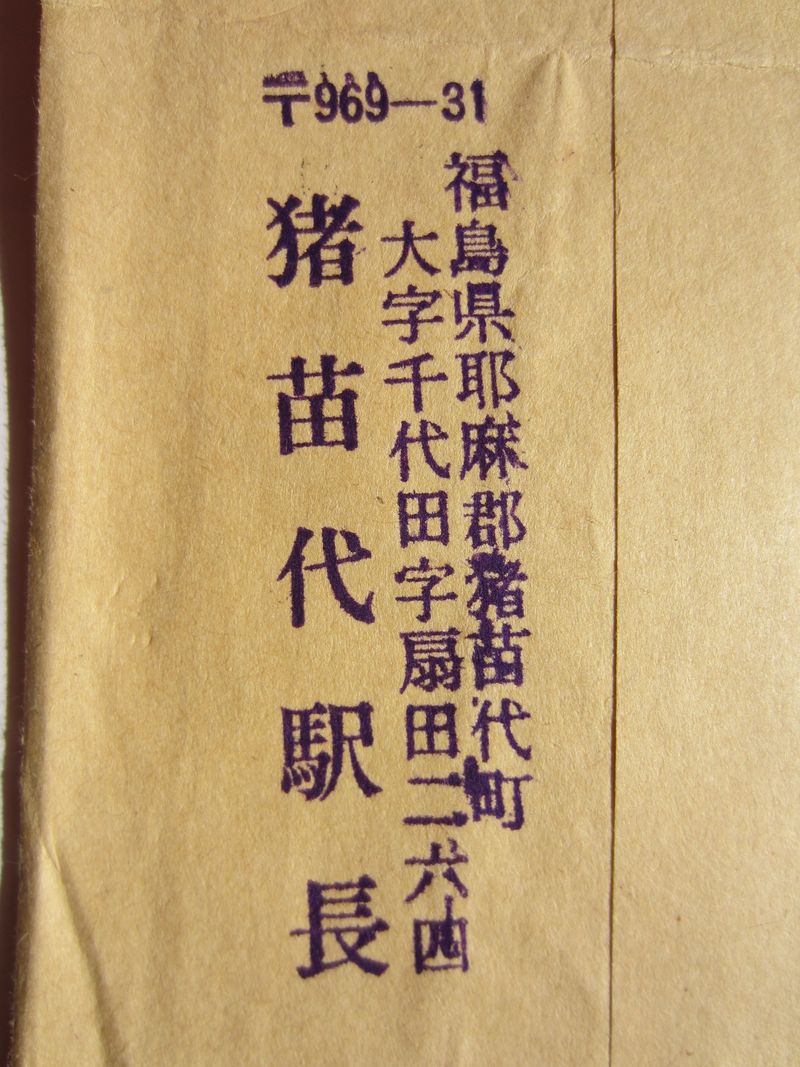 〒969―31
福島県耶麻郡猪苗代町
大字千代田字扇田二六四
猪苗代駅長